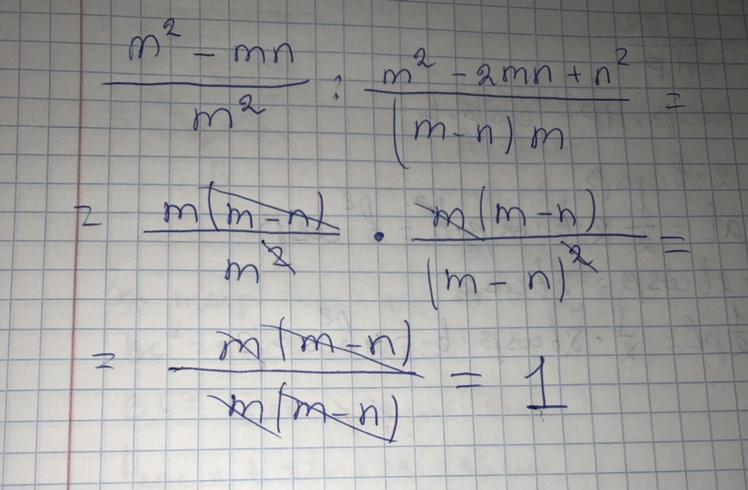 (m² - mn)/m² : (m² - 2mn + n²)/((m-n)m) =
= m(m-n)/m² · m(m-n)/(m-n)² =
= m(m-n)/m(m-n) = 1